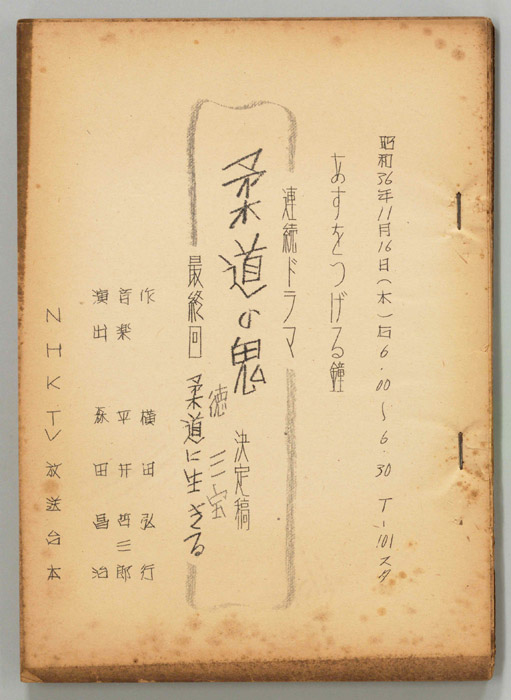 昭和36年11月16日(木)后6.00〜6.30 T-101スタ
あすをつげる鐘
連続ドラマ
柔道の鬼
決定稿
徳三宝
最終回 柔道に生きる
作 横田弘行
音楽 平井哲三郎
演出 森田昌治
NHKTV放送台本